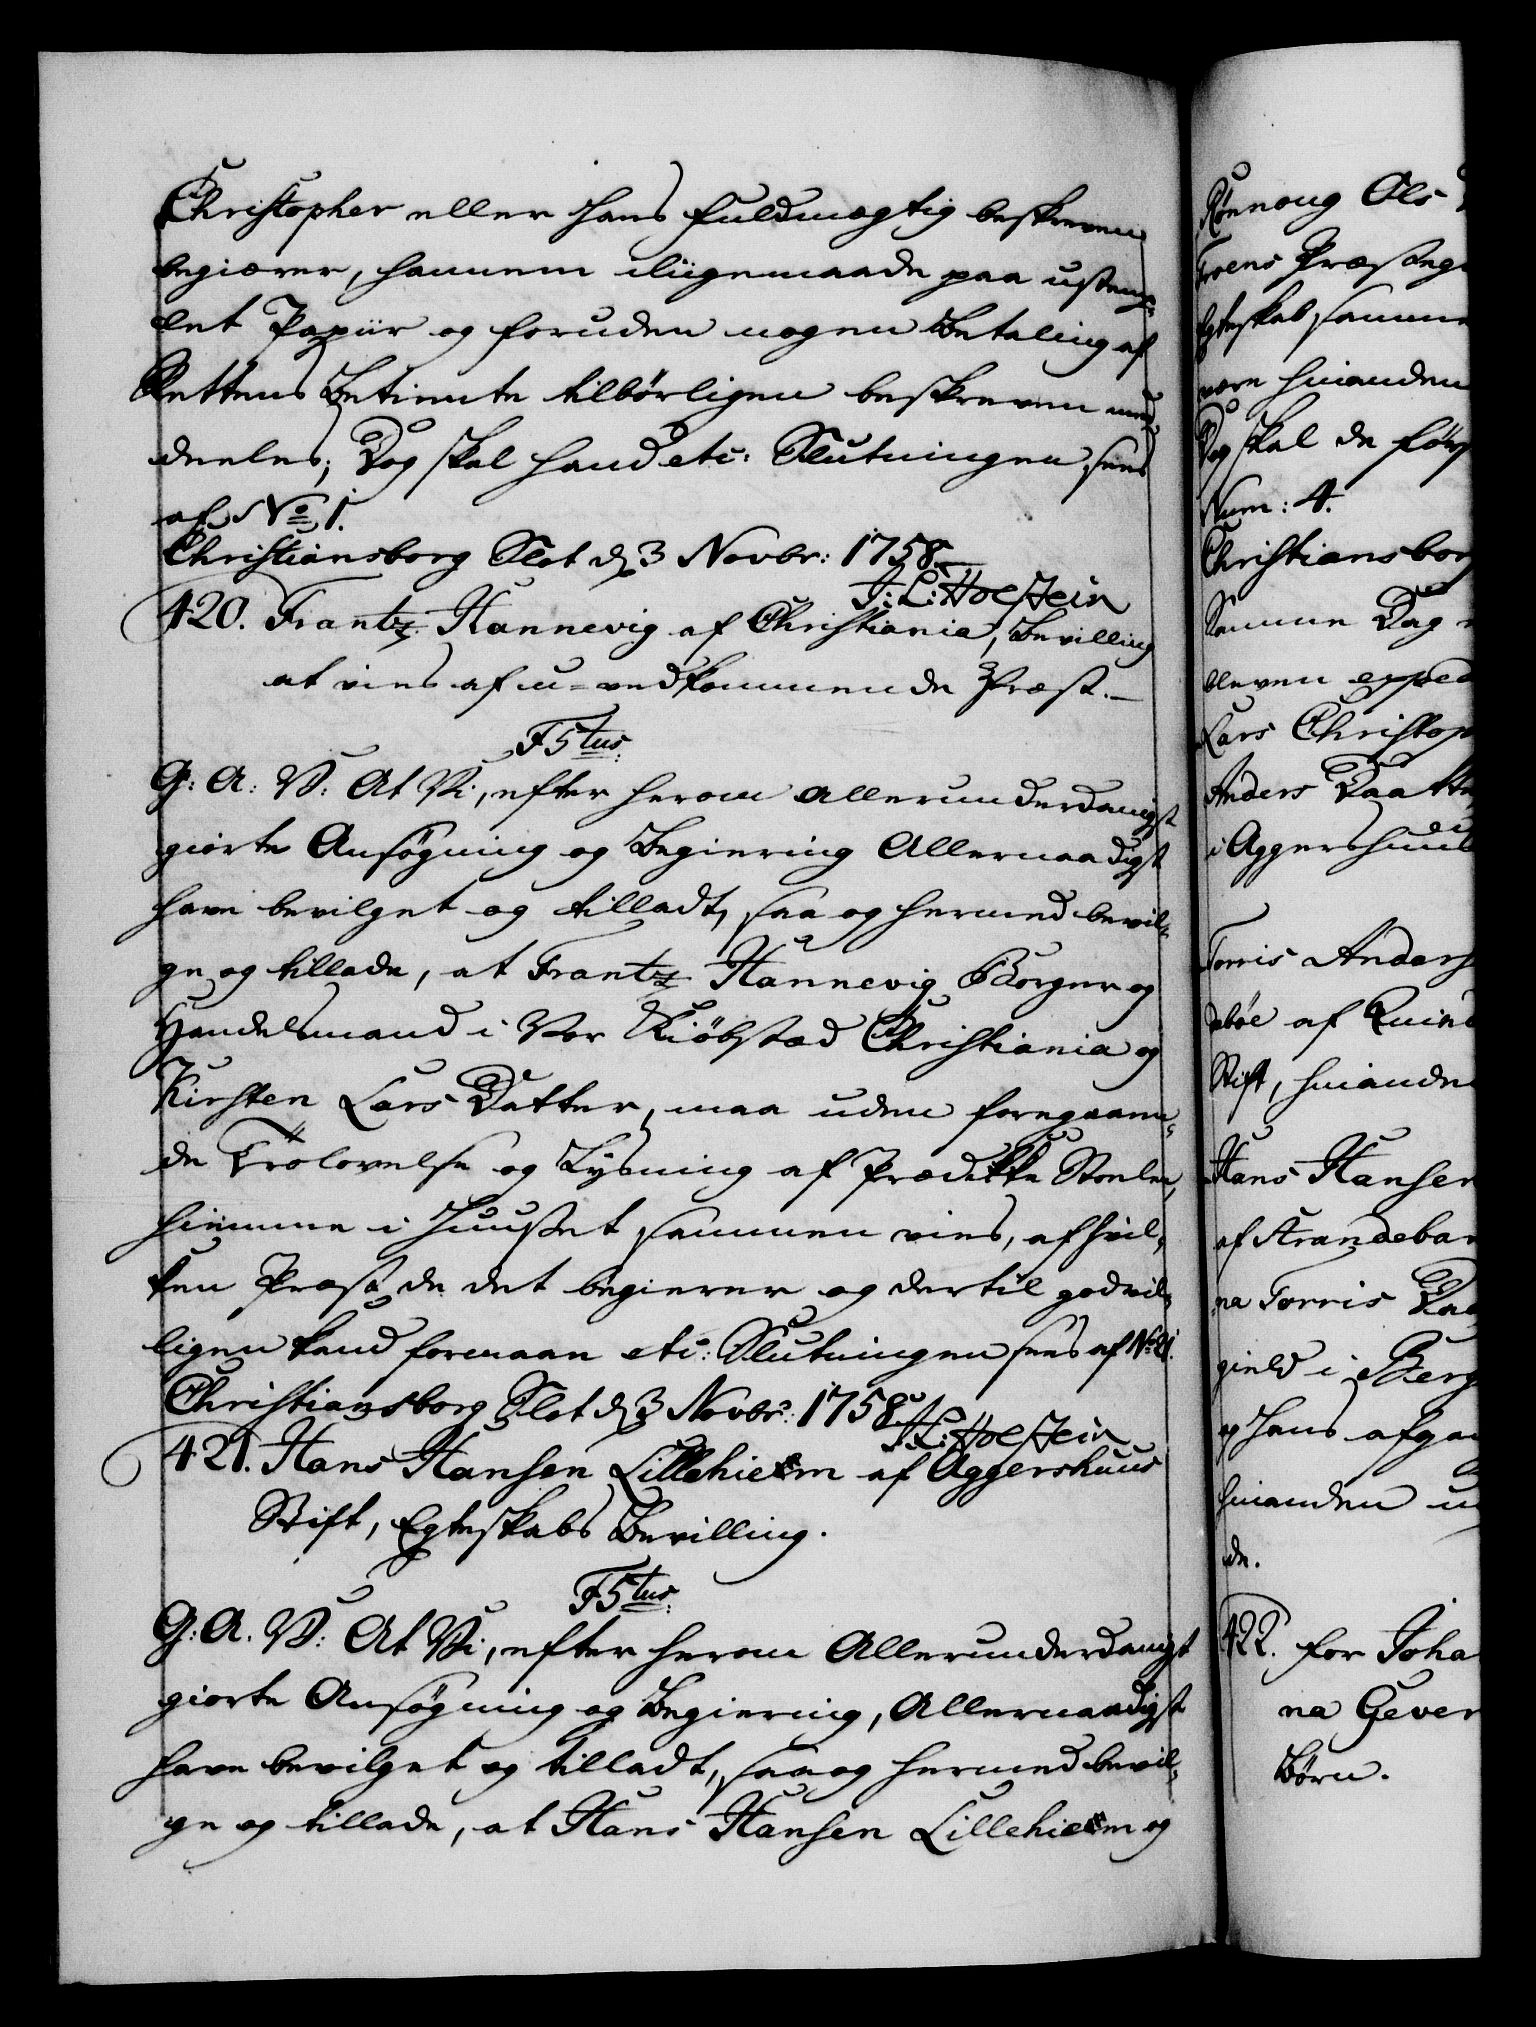 Christopher eller Hans Fuldmægtig beskreven
begiærer, hannem iligemaade paa ustemp-
let Papiir og foruden nogen Betaling af
Rettens Betiente tilbørligen beskreven med
deeles; Dog skal hand etc: Slutningen sees
af No 1.
Christiansborg Slot d. 3 Novbr: 1758.
J: L: Holstein
420. Frantz Hannevig af Christiania, Bevilling
at vies af u-vedkommende Præst.
F5tus
G: A: V: At Vi, efter herom allerunderdanigst
giorte Ansøgning og Begiering Allernaadigst
have bevilget og tilladt, saa og hermed bevil-
ge og tillade, at Frantz Hannevig Borger og
Handelsmand i Vor Kiøbstæd Christiania og
Kirsten Lars Datter, maa uden foregaaen-
de Trolovelse og Lysning af Prædikke Stoelen,
hiemme i Huuset sammen vies, af hvil-
ken Præst de det begierer og dertil godvil-
ligen kand formaae etc: Slutningen sees af No 21.
Christiansborg Slot d. 3 Novbr: 1758.
J: L: Holstein
421. Hans Hansen Lillehiem af Aggershuus
Stift, Egteskabs Bevilling.
F5tus
G: A. V: At Vi, efter herom Allerunderdanigst
giorte Ansøgning og Begiering, Allernaadigst
have bevilget og tilladt, saa og hermed bevil-
ge og tillade, at Hans Hansen Lillehiem og
Rønnoug Ols
Froens Præsteg
Egteskab samme
være hinanden
Dog skal de
Num: 4.
Christiansbor
Samme Dag
bleven exped
Lars Christop
Anders Daatte
i Aggershuus
Torris Anders
af Quind
Stift, hinande
Hans Hansen
af Strandebar
na Torris Daa
gield i Berg
og Hans afga
hinanden
de.
422. for Joha
na Gever
Børn.